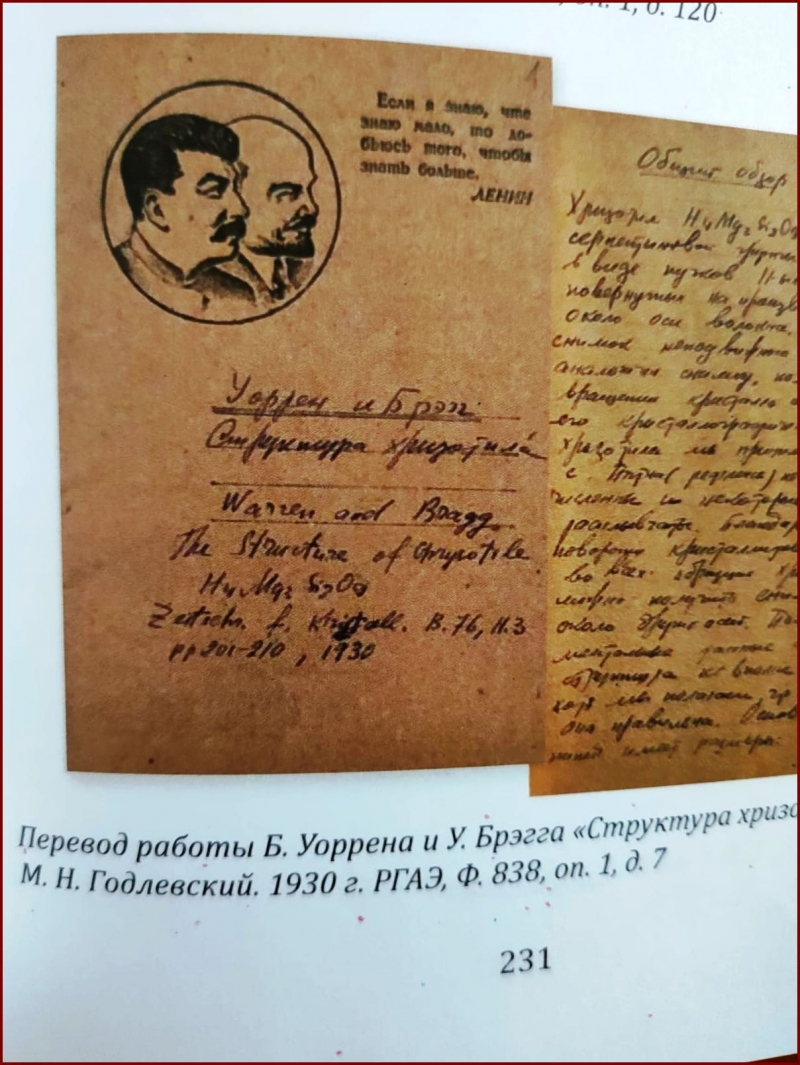 оп. 1, д. 120
1
Если я знаю, что
знаю мало, то до-
бьюсь того, чтобы
знать больше.
ЛЕНИН
Уоррен и Брэгг
Структура хризотила
Warren and Bragg
The Structure of Chrysotile
H4Mg3Si2O9
Zeitschr. f. Kristall. B. 76, H. 3
pp 201-210, 1930
Общий обзор
Хризотил H4Mg3Si2O9
серпентиновой
в виде пучков
повернутых на
около оси волокна.
снимок неподвижного
аналогичен снимку,
вращении кристалла
его кристаллографич
хризотила мы
с
численны и некоторые
расплывчаты. Благодар
повороту кристаллитов
во всех образцах
можно получить
около
ментальные данные
структура не вполне
хотя мы полагаем,
она правильна.
имеет размеры:
Перевод работы Б. Уоррена и У. Брэгга «Структура хризо
М. Н. Годлевский. 1930 г. РГАЭ, Ф. 838, оп. 1, д. 7
231